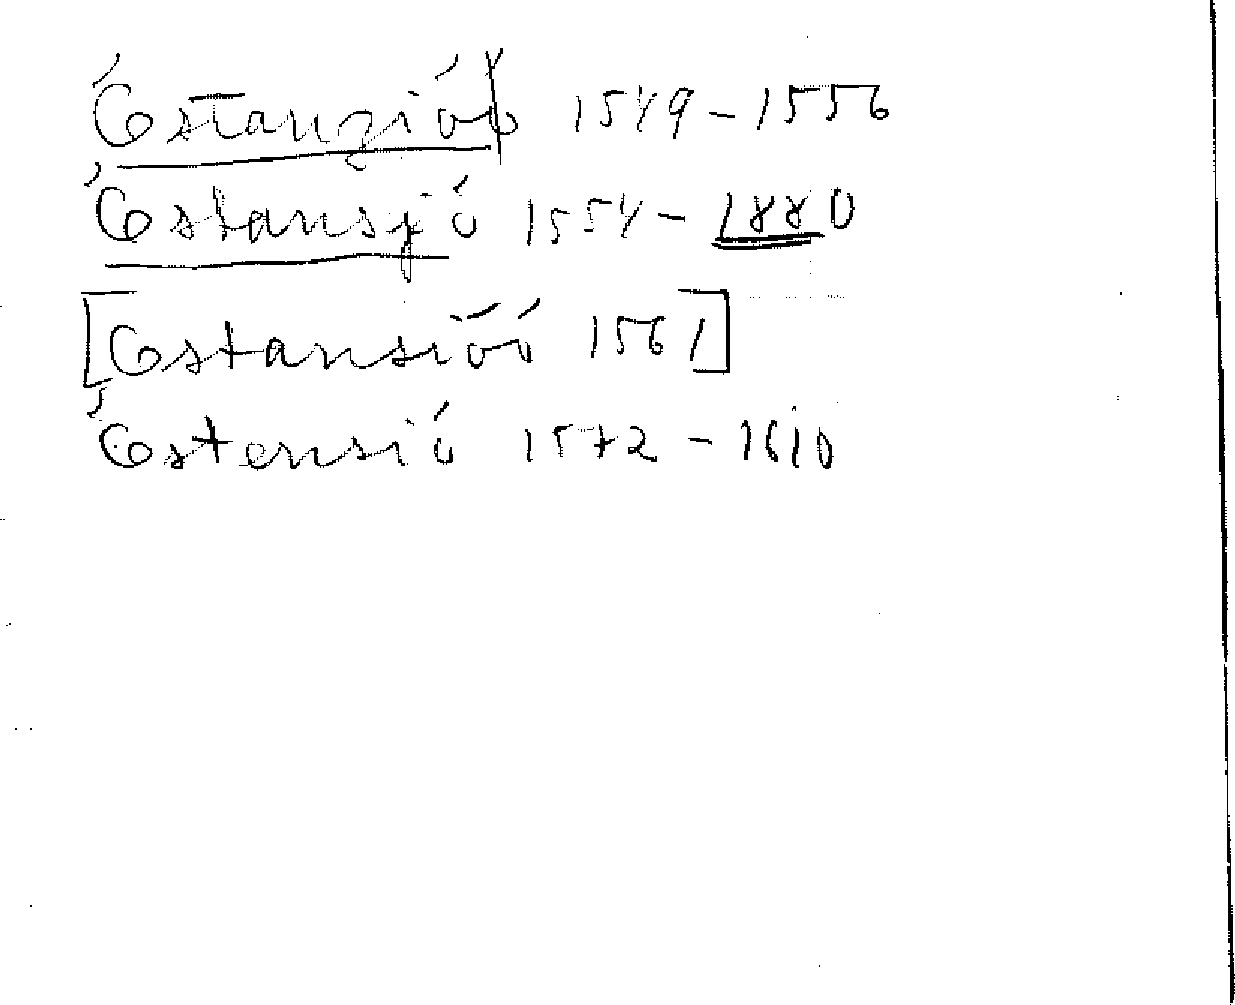 Óstanzióó 1549-1556
Óstansjó 1554-1880
[Óstansióó 1561]
Óstensió 1572-1610